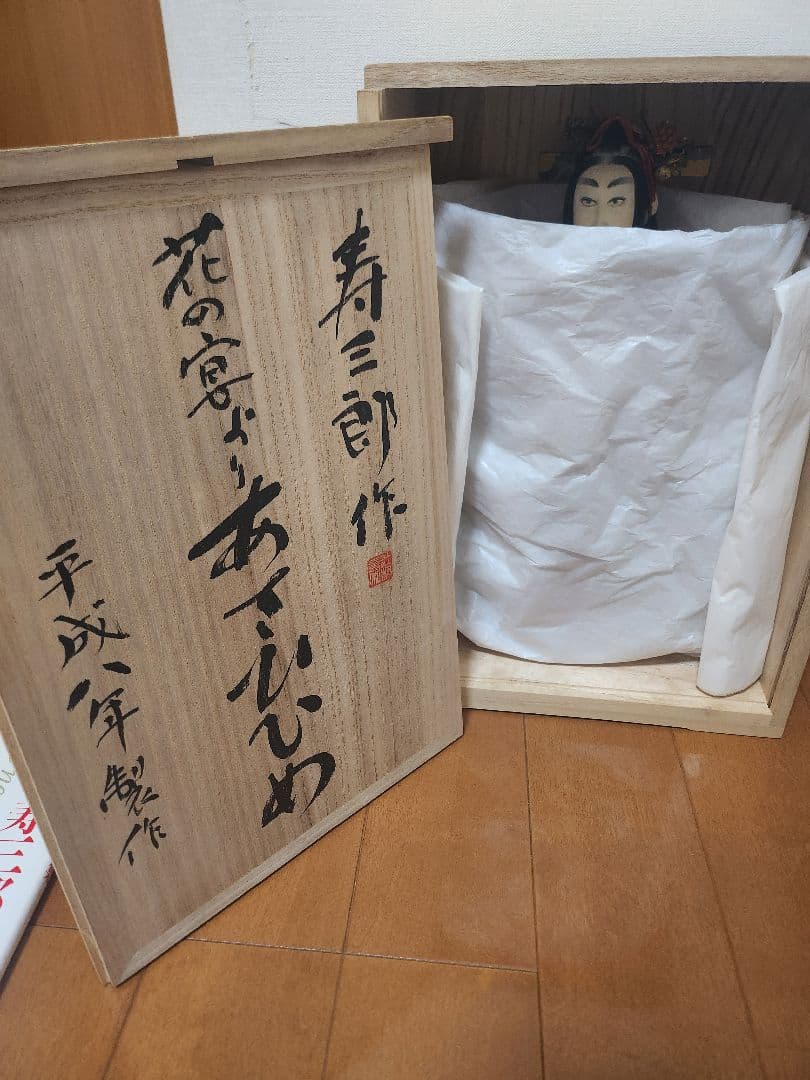 寿三郎作
花の宴より
あさひひめ
平成八年製作
寿三郎